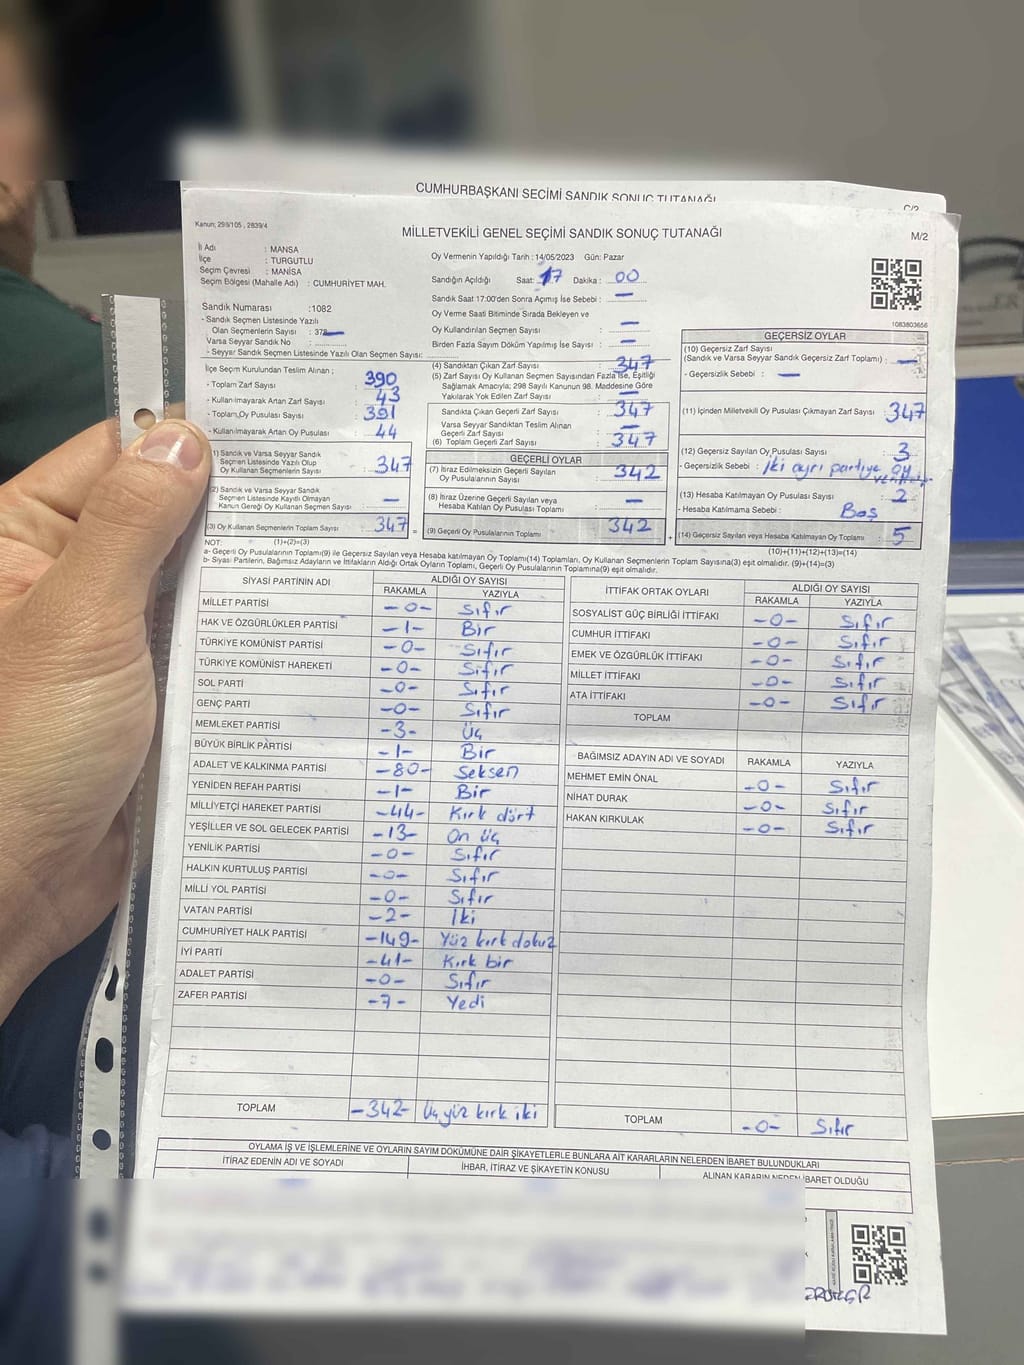 CUMHURBAŞKANI SEÇİMİ SANDIK SONUÇ TUTANAĞI
C/2
Kanun; 298/105 , 2839/4
MİLLETVEKİLİ GENEL SEÇİMİ SANDIK SONUÇ TUTANAĞI
M/2
İl Adı : MANSA
İlçe : TURGUTLU
Seçim Çevresi : MANİSA
Seçim Bölgesi (Mahalle Adı) : CUMHURİYET MAH.
Oy Vermenin Yapıldığı Tarih : 14/05/2023 Gün: Pazar
Sandığın Açıldığı Saat: 17 Dakika : 00
Sandık Saat 17:00'den Sonra Açımış İse Sebebi : —
Oy Verme Saati Bitiminde Sırada Bekleyen ve
Oy Kullandırılan Seçmen Sayısı : —
Birden Fazla Sayım Döküm Yapılmış İse Sayısı : —
1083803656
Sandık Numarası : 1082
- Sandık Seçmen Listesinde Yazılı
Olan Seçmenlerin Sayısı : 378
Varsa Seyyar Sandık No :
- Seyyar Sandık Seçmen Listesinde Yazılı Olan Seçmen Sayısı:
İlçe Seçim Kurulundan Teslim Alınan ;
- Toplam Zarf Sayısı : 390
- Kullanılmayarak Artan Zarf Sayısı : 43
- Toplam Oy Pusulası Sayısı : 391
- Kullanılmayarak Artan Oy Pusulası : 44
(1) Sandık ve Varsa Seyyar Sandık
Seçmen Listesinde Yazılı Olup
Oy Kullanan Seçmenlerin Sayısı : 347
(2) Sandık ve Varsa Seyyar Sandık
Seçmen Listesinde Kayıtlı Olmayan
Kanun Gereği Oy Kullanan Seçmen Sayısı : —
(3) Oy Kullanan Seçmenlerin Toplam Sayısı : 347
(4) Sandıktan Çıkan Zarf Sayısı : 347
(5) Zarf Sayısı Oy Kullanan Seçmen Sayısından Fazla İse, Eşitliği
Sağlamak Amacıyla; 298 Sayılı Kanunun 98. Maddesine Göre
Yakılarak Yok Edilen Zarf Sayısı : —
Sandıkta Çıkan Geçerli Zarf Sayısı : 347
Varsa Seyyar Sandıktan Teslim Alınan
Geçerli Zarf Sayısı : —
(6) Toplam Geçerli Zarf Sayısı : 347
GEÇERLİ OYLAR
(7) İtiraz Edilmeksizin Geçerli Sayılan
Oy Pusulalarının Sayısı : 342
(8) İtiraz Üzerine Geçerli Sayılan veya
Hesaba Katılan Oy Pusulası Toplamı : —
= (9) Geçerli Oy Pusulalarının Toplamı : 342
GEÇERSİZ OYLAR
(10) Geçersiz Zarf Sayısı
(Sandık ve Varsa Seyyar Sandık Geçersiz Zarf Toplamı) : —
- Geçersizlik Sebebi : —
(11) İçinden Milletvekili Oy Pusulası Çıkmayan Zarf Sayısı : 347
(12) Geçersiz Sayılan Oy Pusulası Sayısı : 3
- Geçersizlik Sebebi : İki ayrı partiye oy
(13) Hesaba Katılmayan Oy Pusulası Sayısı : 2
- Hesaba Katılmama Sebebi : Boş
+ (14) Geçersiz Sayılan veya Hesaba Katılmayan Oy Toplamı : 5
NOT: (1)+(2)=(3)
(10)+(11)+(12)+(13)=(14)
a- Geçerli Oy Pusulalarının Toplamı(9) ile Geçersiz Sayılan veya Hesaba katılmayan Oy Toplamı(14) Toplamları, Oy Kullanan Seçmenlerin Toplam Sayısına(3) eşit olmalıdır. (9)+(14)=(3)
b- Siyasi Partilerin, Bağımsız Adayların ve İttifakların Aldığı Ortak Oyların Toplamı, Geçerli Oy Pusulalarının Toplamına(9) eşit olmalıdır.
SİYASİ PARTİNİN ADI ALDIĞI OY SAYISI
RAKAMLA YAZIYLA
MİLLET PARTİSİ -0- Sıfır
HAK VE ÖZGÜRLÜKLER PARTİSİ -1- Bir
TÜRKİYE KOMÜNİST PARTİSİ -0- Sıfır
TÜRKİYE KOMÜNİST HAREKETİ -0- Sıfır
SOL PARTİ -0- Sıfır
GENÇ PARTİ -0- Sıfır
MEMLEKET PARTİSİ -3- Üç
BÜYÜK BİRLİK PARTİSİ -1- Bir
ADALET VE KALKINMA PARTİSİ -80- Seksen
YENİDEN REFAH PARTİSİ -1- Bir
MİLLİYETÇİ HAREKET PARTİSİ -44- Kırk dört
YEŞİLLER VE SOL GELECEK PARTİSİ -13- On Üç
YENİLİK PARTİSİ -0- Sıfır
HALKIN KURTULUŞ PARTİSİ -0- Sıfır
MİLLİ YOL PARTİSİ -0- Sıfır
VATAN PARTİSİ -2- İki
CUMHURİYET HALK PARTİSİ -149- Yüz kırk dokuz
İYİ PARTİ -41- Kırk bir
ADALET PARTİSİ -0- Sıfır
ZAFER PARTİSİ -7- Yedi
TOPLAM -342- Üç yüz kırk iki
İTTİFAK ORTAK OYLARI ALDIĞI OY SAYISI
RAKAMLA YAZIYLA
SOSYALİST GÜÇ BİRLİĞİ İTTİFAKI -0- Sıfır
CUMHUR İTTİFAKI -0- Sıfır
EMEK VE ÖZGÜRLÜK İTTİFAKI -0- Sıfır
MİLLET İTTİFAKI -0- Sıfır
ATA İTTİFAKI -0- Sıfır
TOPLAM
BAĞIMSIZ ADAYIN ADI VE SOYADI RAKAMLA YAZIYLA
MEHMET EMİN ÖNAL -0- Sıfır
NİHAT DURAK -0- Sıfır
HAKAN KIRKULAK -0- Sıfır
TOPLAM -0- Sıfır
OYLAMA İŞ VE İŞLEMLERİNE VE OYLARIN SAYIM DÖKÜMÜNE DAİR ŞİKAYETLERLE BUNLARA AİT KARARLARIN NELERDEN İBARET BULUNDUKLARI
İTİRAZ EDENİN ADI VE SOYADI İHBAR, İTİRAZ VE ŞİKAYETİN KONUSU ALINAN KARARIN NEDEN İBARET OLDUĞU